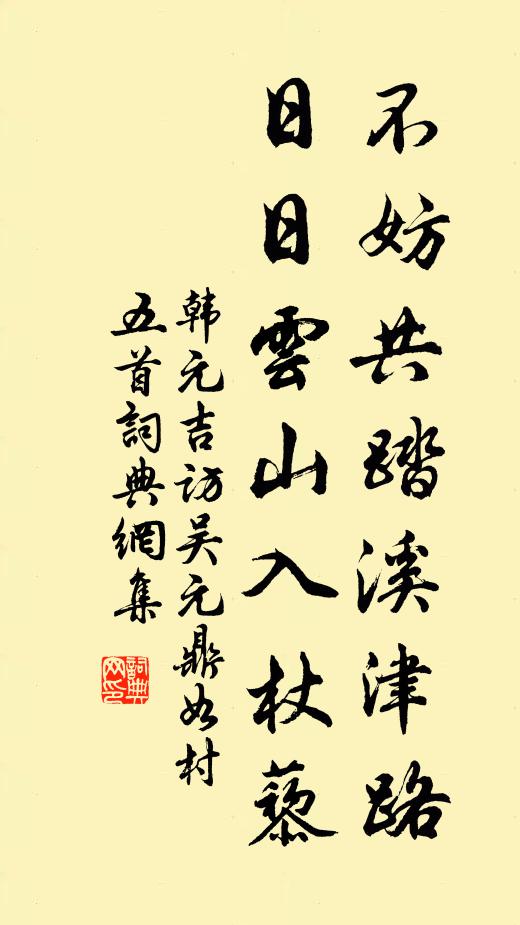 不妨共踏溪津路
日日雲山入杖藜
韩元吉訪吴元鼎如村
五首詞典網集
詞典网印